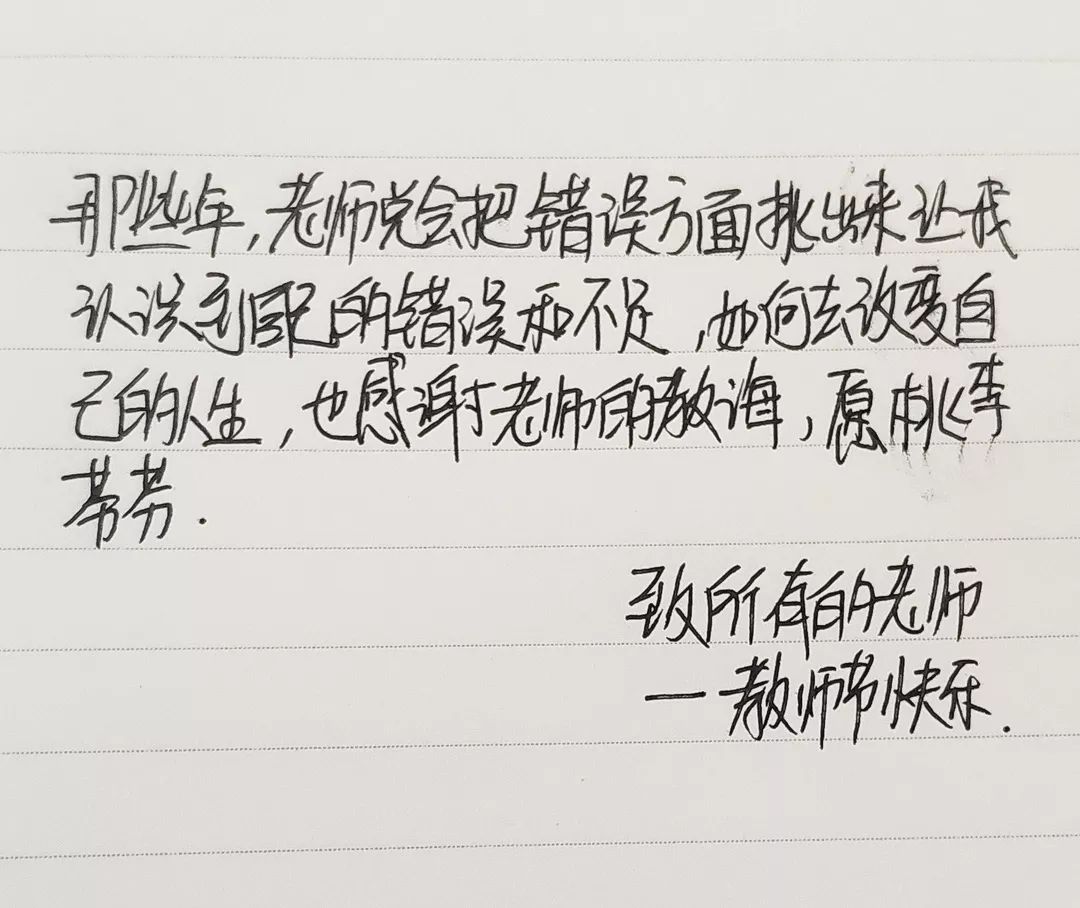 那些年,老师总会把错误方面挑出来让我
认识到自己的错误和不足,如何去改变自
己的人生,也感谢老师的教诲,愿桃李
芬芳.
致所有的老师
—教师节快乐.